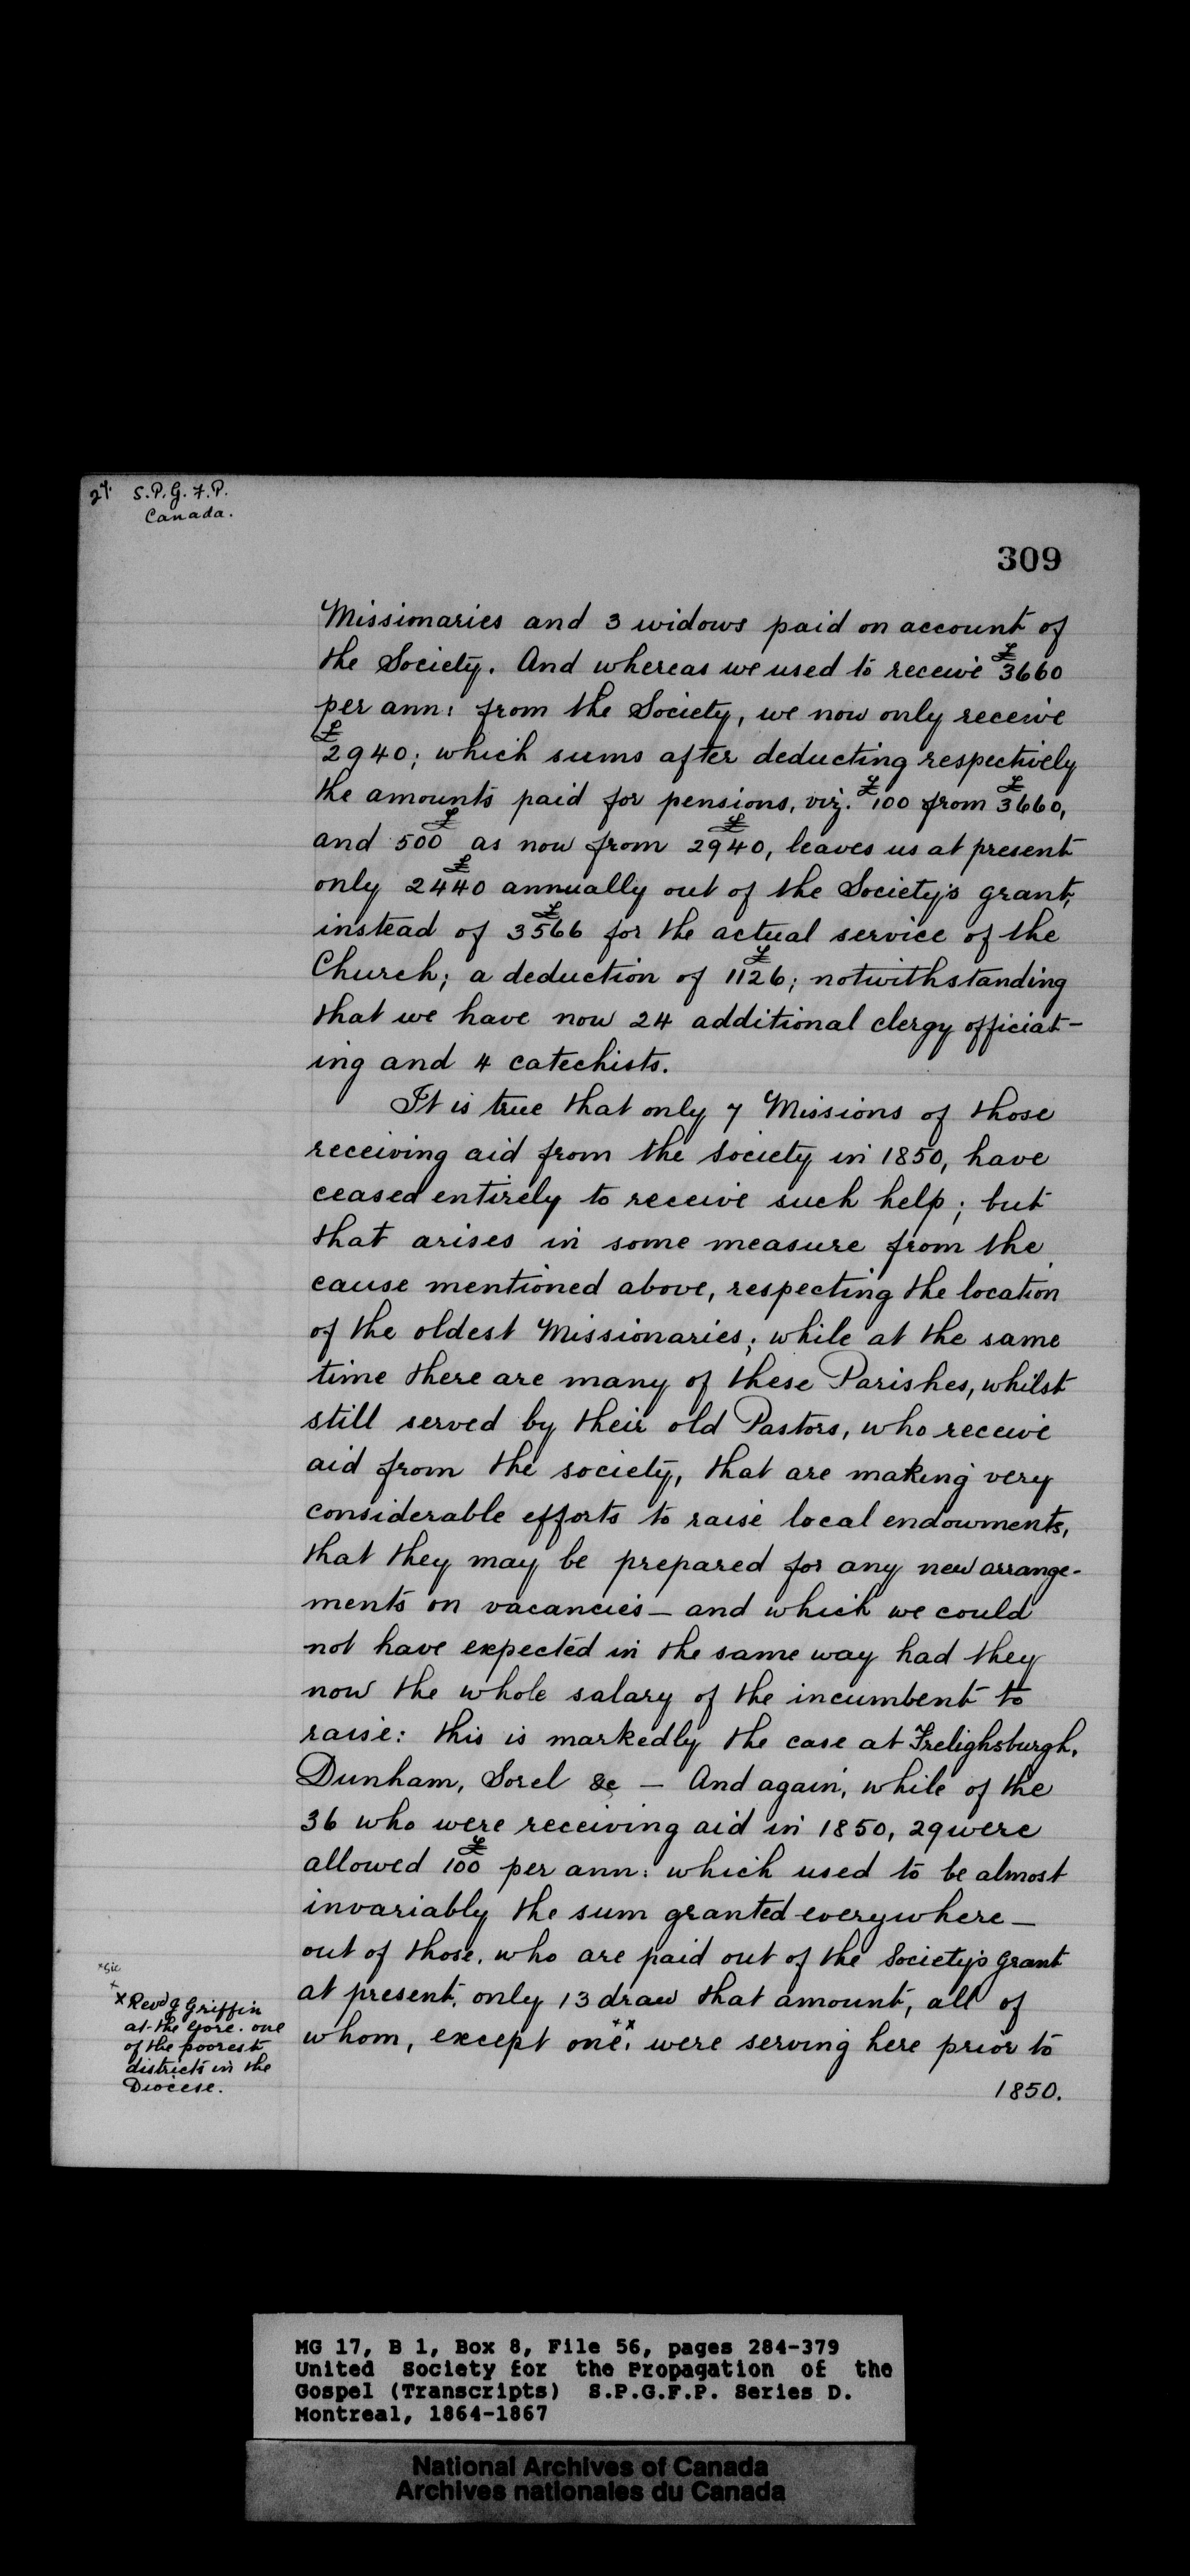 27. S.P.G.F.P.
Canada.
309
Missionaries and 3 widows paid on account of
the Society. And whereas we used to receive £3660
per ann: from the Society, we now only receive
£2940; which sums after deducting respectively
the amounts paid for pensions, viz. £100 from £3660,
and 500£ as now from 2940£, leaves us at present
only 2440£ annually out of the Society's grant,
instead of 3566£ for the actual service of the
Church; a deduction of 1126£; notwithstanding
that we have now 24 additional clergy officiat-
ing and 4 catechists.
It is true that only 7 Missions of those
receiving aid from the Society in 1850, have
ceased entirely to receive such help; but
that arises in some measure from the
cause mentioned above, respecting the location
of the oldest Missionaries; while at the same
time there are many of these Parishes, whilst
still served by their old Pastors, who receive
aid from the society, that are making very
considerable efforts to raise local endowments,
that they may be prepared for any new arrange-
ments on vacancies — and which we could
not have expected in the same way had they
now the whole salary of the incumbent to
raise: this is markedly the case at Frelighsburgh,
Dunham, Sorel &c — And again, while of the
36 who were receiving aid in 1850, 29 were
allowed 100£ per ann: which used to be almost
invariably the sum granted everywhere —
out of those, who are paid out of the Society's Grant
at present, only 13 draw that amount, all of
whom, except one,+x were serving here prior to
1850.
*sic
+
x Revd J Griffin
at the Gore. one
of the poorest
districts in the
Diocese.
MG 17, B 1, Box 8, File 56, pages 284-379
United Society for the Propagation of the
Gospel (Transcripts) S.P.G.F.P. Series D.
Montreal, 1864-1867
National Archives of Canada
Archives nationales du Canada